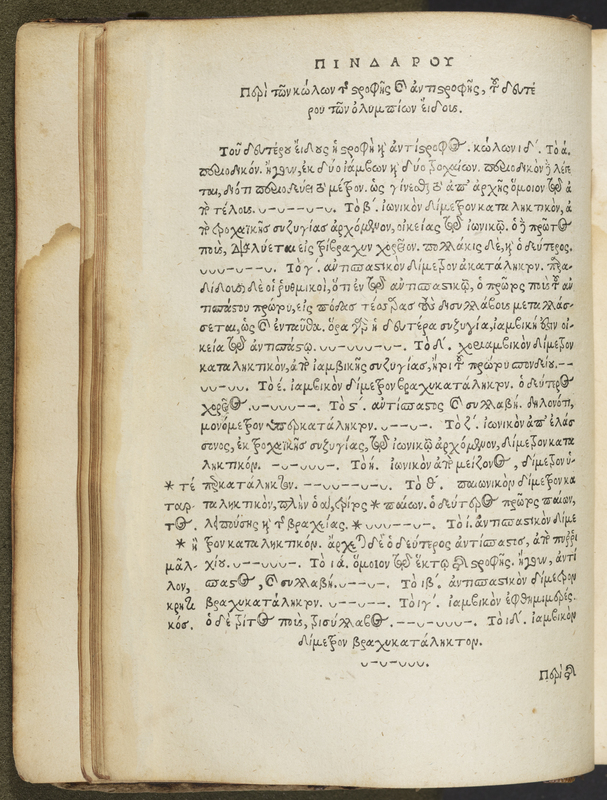 ΠΙΝΔΑΡΟΥ
Περὶ τῶν κώλων τῆς στροφῆς καὶ ἀντιστροφῆς, τοῦ δευτέ
ρου τῶν ὀλυμπίων εἴδους.
Τοῦ δευτέρου εἴδους ἡ στροφὴ καὶ ἀντίστροφος. κώλων ιδ´. Τὸ ά.
περιοδικόν. ἤγουν, ἐκ δύο ἰάμβων καὶ δύο τροχαίων. περιοδικὸν δὲ λέγε
ται, διότι περιοδεύει τὸ μέτρον. ὡς γίνεσθαι τὸ ἀπ' ἀρχῆς ὅμοιον τῷ ἀ
πὸ τέλους. ᴗ–ᴗ––ᴗ–ᴗ. Τὸ β´. ἰωνικὸν δίμετρον καταληκτικὸν, ἀ
πὸ τροχαϊκῆς συζυγίας ἀρχόμενον, οἰκείας τῷ ἰωνικῷ. ὁ δὲ πρῶτος
ποὺς, διαλύεται εἰς τρίβραχυν χορεῖον. πολλάκις δὲ, καὶ ὁ δεύτερος.
ᴗᴗᴗ–ᴗ––ᴗ. Τὸ γ´. ἀντισπαστικὸν δίμετρον ἀκατάληκτον. πα
διδόασι δὲ οἱ ῥυθμικοὶ, ὅτι ἐν τῷ ἀντισπαστικῷ, ὁ πρῶτος ποὺς τοῦ ἀν
τισπάστου πρώτου, εἰς πόδας τέσσαρας τοὺς δισυλλάβους μεταλλάσ–
σεται, ὡς καὶ ἐνταῦθα. ὅρα γὰρ ἡ δευτέρα συζυγία, ἰαμβική ἐστιν οἰ–
κεία τῷ ἀντισπάστῳ. ᴗᴗ–ᴗᴗ–ᴗ–. Τὸ δ´. χοριαμβικὸν δίμετρον
καταληκτικὸν, ἀπὸ ἰαμβικῆς συζυγίας, ἤτοι τοῦ πρώτου σπονδείου. ––
ᴗᴗ–ᴗᴗ. Τὸ έ. ἰαμβικὸν δίμετρον βραχυκατάληκτον. ὁ δεύτερος
χορεῖος. ᴗ–ᴗᴗᴗ––. Τὸ ϛ´. ἀντίσπαστος καὶ συλλαβή. δηλονότι,
μονόμετρον ὑπερκατάληκτον. ᴗ––ᴗ–. Τὸ ζ´. ἰωνικὸν ἀπ' ἐλάσ
σονος, ἐκ τροχαϊκῆς συζυγίας, τῷ ἰωνικῷ ἀρχόμενον, δίμετρον κατα
ληκτικόν. –ᴗ–ᴗᴗ–. Τὸ ή. ἰωνικὸν ἀπὸ μείζονος, δίμετρον ὑ–
περκατάληκτον. ––ᴗᴗ––ᴗ–ᴗ. Τὸ θ´. παιωνικὸν δίμετρον κα
* τέ
ταρ–
τος
ταληκτικὸν, πλὴν ὁ α´, τρίτος * παίων. ὁ δεύτερος πρῶτος παίων,
λειπούσης καὶ τῆς βραχείας. * ᴗᴗᴗ––ᴗ. Τὸ ί. ἀντισπαστικὸν δίμε
* ἢ
μᾶλ–
λον,
κρητι
κός.
τρον καταληκτικόν. ἄρχεται δὲ ὁ δεύτερος ἀντίσπαστος, ἀπὸ πυρρι
χίου. ᴗ––ᴗᴗᴗ–. Τὸ ιά. ὅμοιον τῷ ἕκτῳ τῆς στροφῆς. ἤγουν, ἀντί
σπαστος, καὶ συλλαβή. ᴗ––ᴗ–. Τὸ ιβ´. ἀντισπαστικὸν δίμετρον
βραχυκατάληκτον. ᴗ––ᴗ––. Τὸ ιγ´. ἰαμβικὸν ἑφθημιμερές.
ὁ δὲ τρίτος ποὺς, τρισύλλαβος. ––ᴗ––ᴗᴗ–. Τὸ ιδ´. ἰαμβικὸν
δίμετρον βραχυκατάληκτον.
ᴗ–ᴗ–ᴗᴗᴗ.
Περὶ